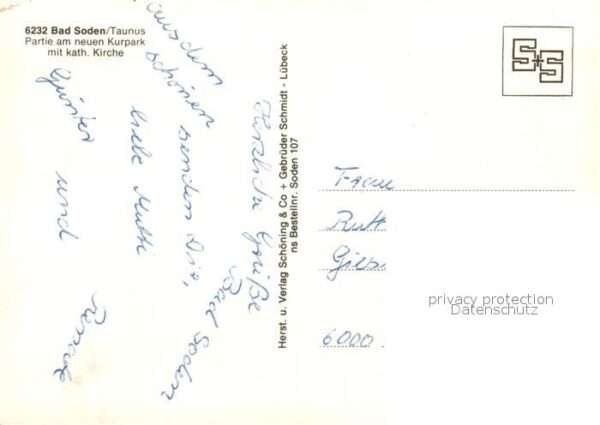 6232 Bad Soden/Taunus
Partie am neuen Kurpark
mit kath. Kirche
Herzliche Grüße
aus dem schönen Bad Soden
senden Dir,
liebe Mutti
Günter und Renate
Herst. u. Verlag Schöning & Co + Gebrüder Schmidt - Lübeck
ns Bestellnr. Soden 107
S+S
Frau
Ruth
Gies
6000
privacy protection
Datenschutz